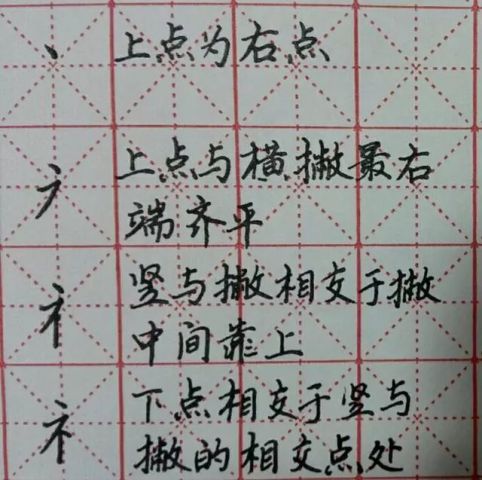 丶 上点为右点
上点与横撇最右
端齐平
竖与撇相交于撇
中间靠上
礻 下点相交于竖与
撇的相交点处